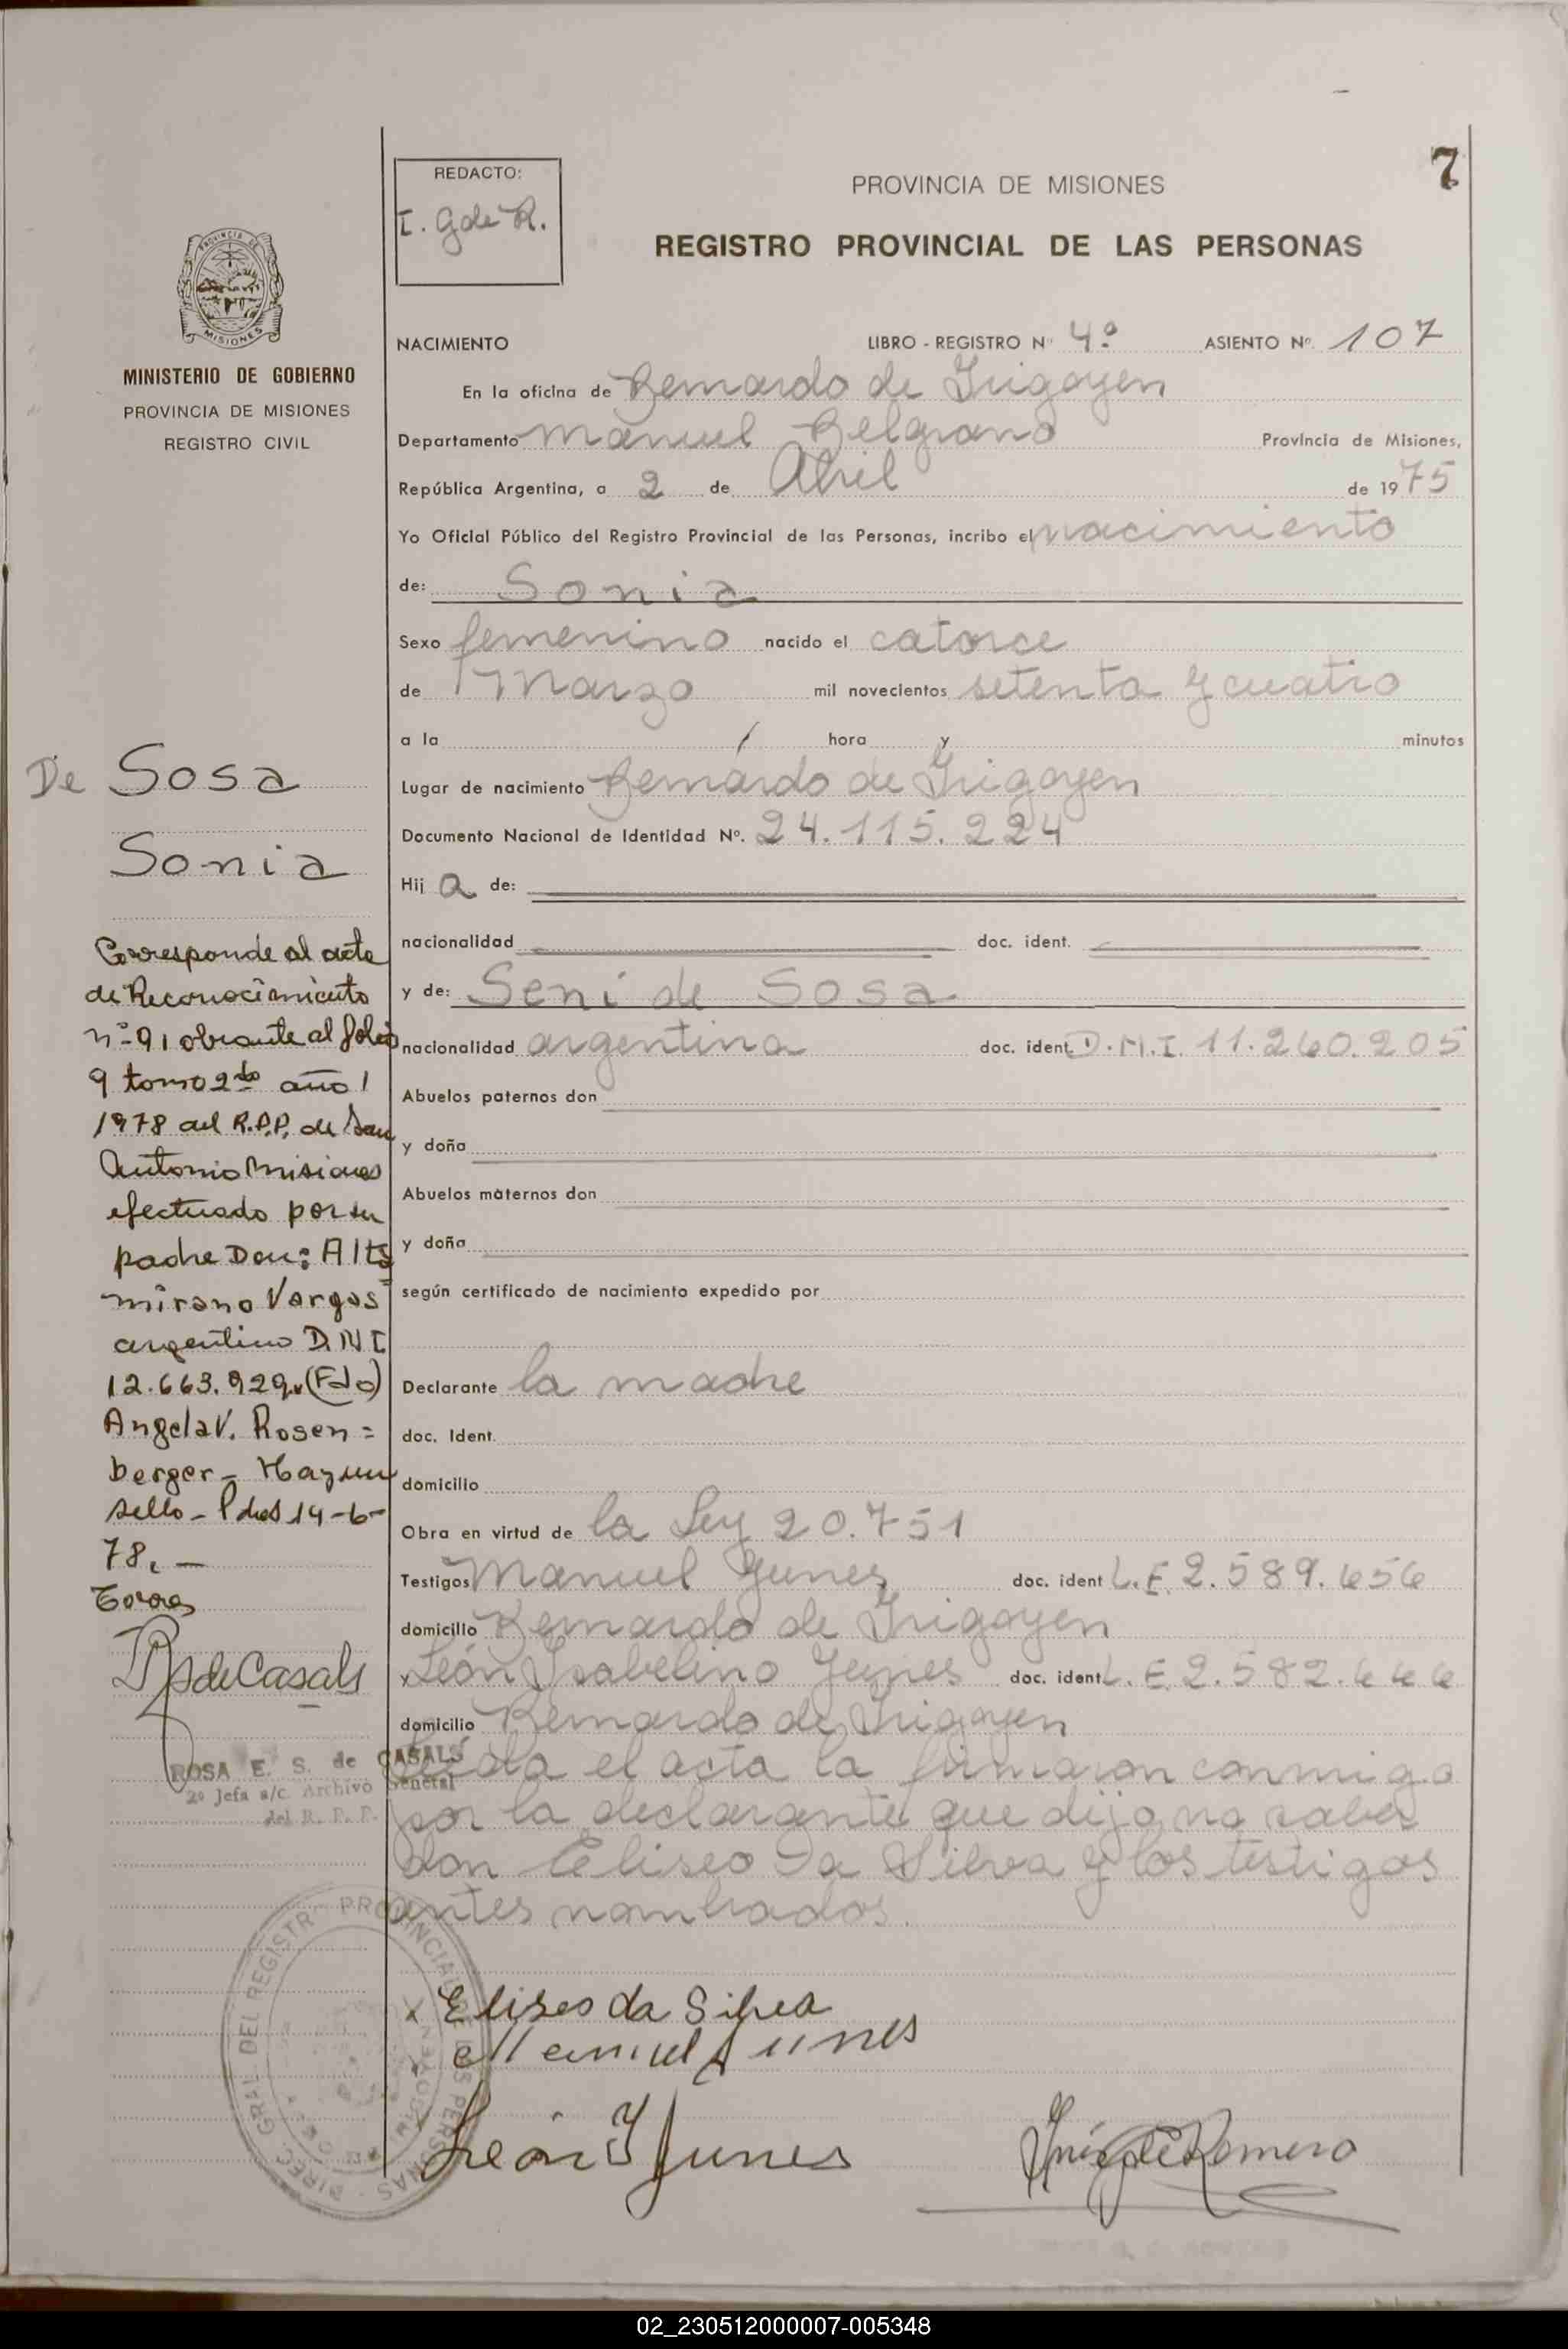 7
REDACTO:
I. G de R.
PROVINCIA DE MISIONES
REGISTRO PROVINCIAL DE LAS PERSONAS
PROVINCIA DE
MISIONES
MINISTERIO DE GOBIERNO
PROVINCIA DE MISIONES
REGISTRO CIVIL
NACIMIENTO LIBRO - REGISTRO Nº 4º ASIENTO Nº. 107
En la oficina de Bernardo de Irigoyen
Departamento Manuel Belgrano Provincia de Misiones,
República Argentina, a 2 de Abril de 1975
Yo Oficial Público del Registro Provincial de las Personas, incribo el nacimiento
de: Sonia
Sexo femenino nacido el catorce
de Marzo mil novecientos setenta y cuatro
a la / hora y minutos
Lugar de nacimiento Bernardo de Irigoyen
Documento Nacional de Identidad Nº. 24.115.224
Hij a de:
nacionalidad doc. ident.
y de: Seni de Sosa
nacionalidad argentina doc. ident. D.N.I. 11.260.205
Abuelos paternos don
y doña
Abuelos maternos don
y doña
según certificado de nacimiento expedido por
Declarante la madre
doc. Ident.
domicilio
Obra en virtud de la Ley 20.751
Testigos Manuel Yunes doc. ident L.E. 2.589.656
domicilio Bernardo de Irigoyen
y León Isabelino Yunes doc. ident L.E. 2.582.666
domicilio Bernardo de Irigoyen
Leída el acta la firmaron conmigo
por la declarante que dijo no saber
don Eliseo Da Silva y los testigos
antes nombrados.
x Eliseo da Silva
Manuel Yunes
León I Yunes
Inés G de Romero
De Sosa
Sonia
Corresponde al acta
de Reconocimiento
nº 91 obrante al folio
9 tomo 2do año
1978 del R.P.P. de San
Antonio Misiones
efectuado por su
padre Don: Alta
mirano Vargas
argentino D.N.I
12.663.929. (Fdo)
Angela V. Rosen=
berger - Hay un
sello - Pdas 14-6-
78. —
Torres
R S de Casals
ROSA E. S. de CASALS
2º Jefa a/c Archivo General
del R. P. P.
DIREC. GRAL. DEL REGISTRO PROVINCIAL DE LAS PERSONAS
02_230512000007-005348